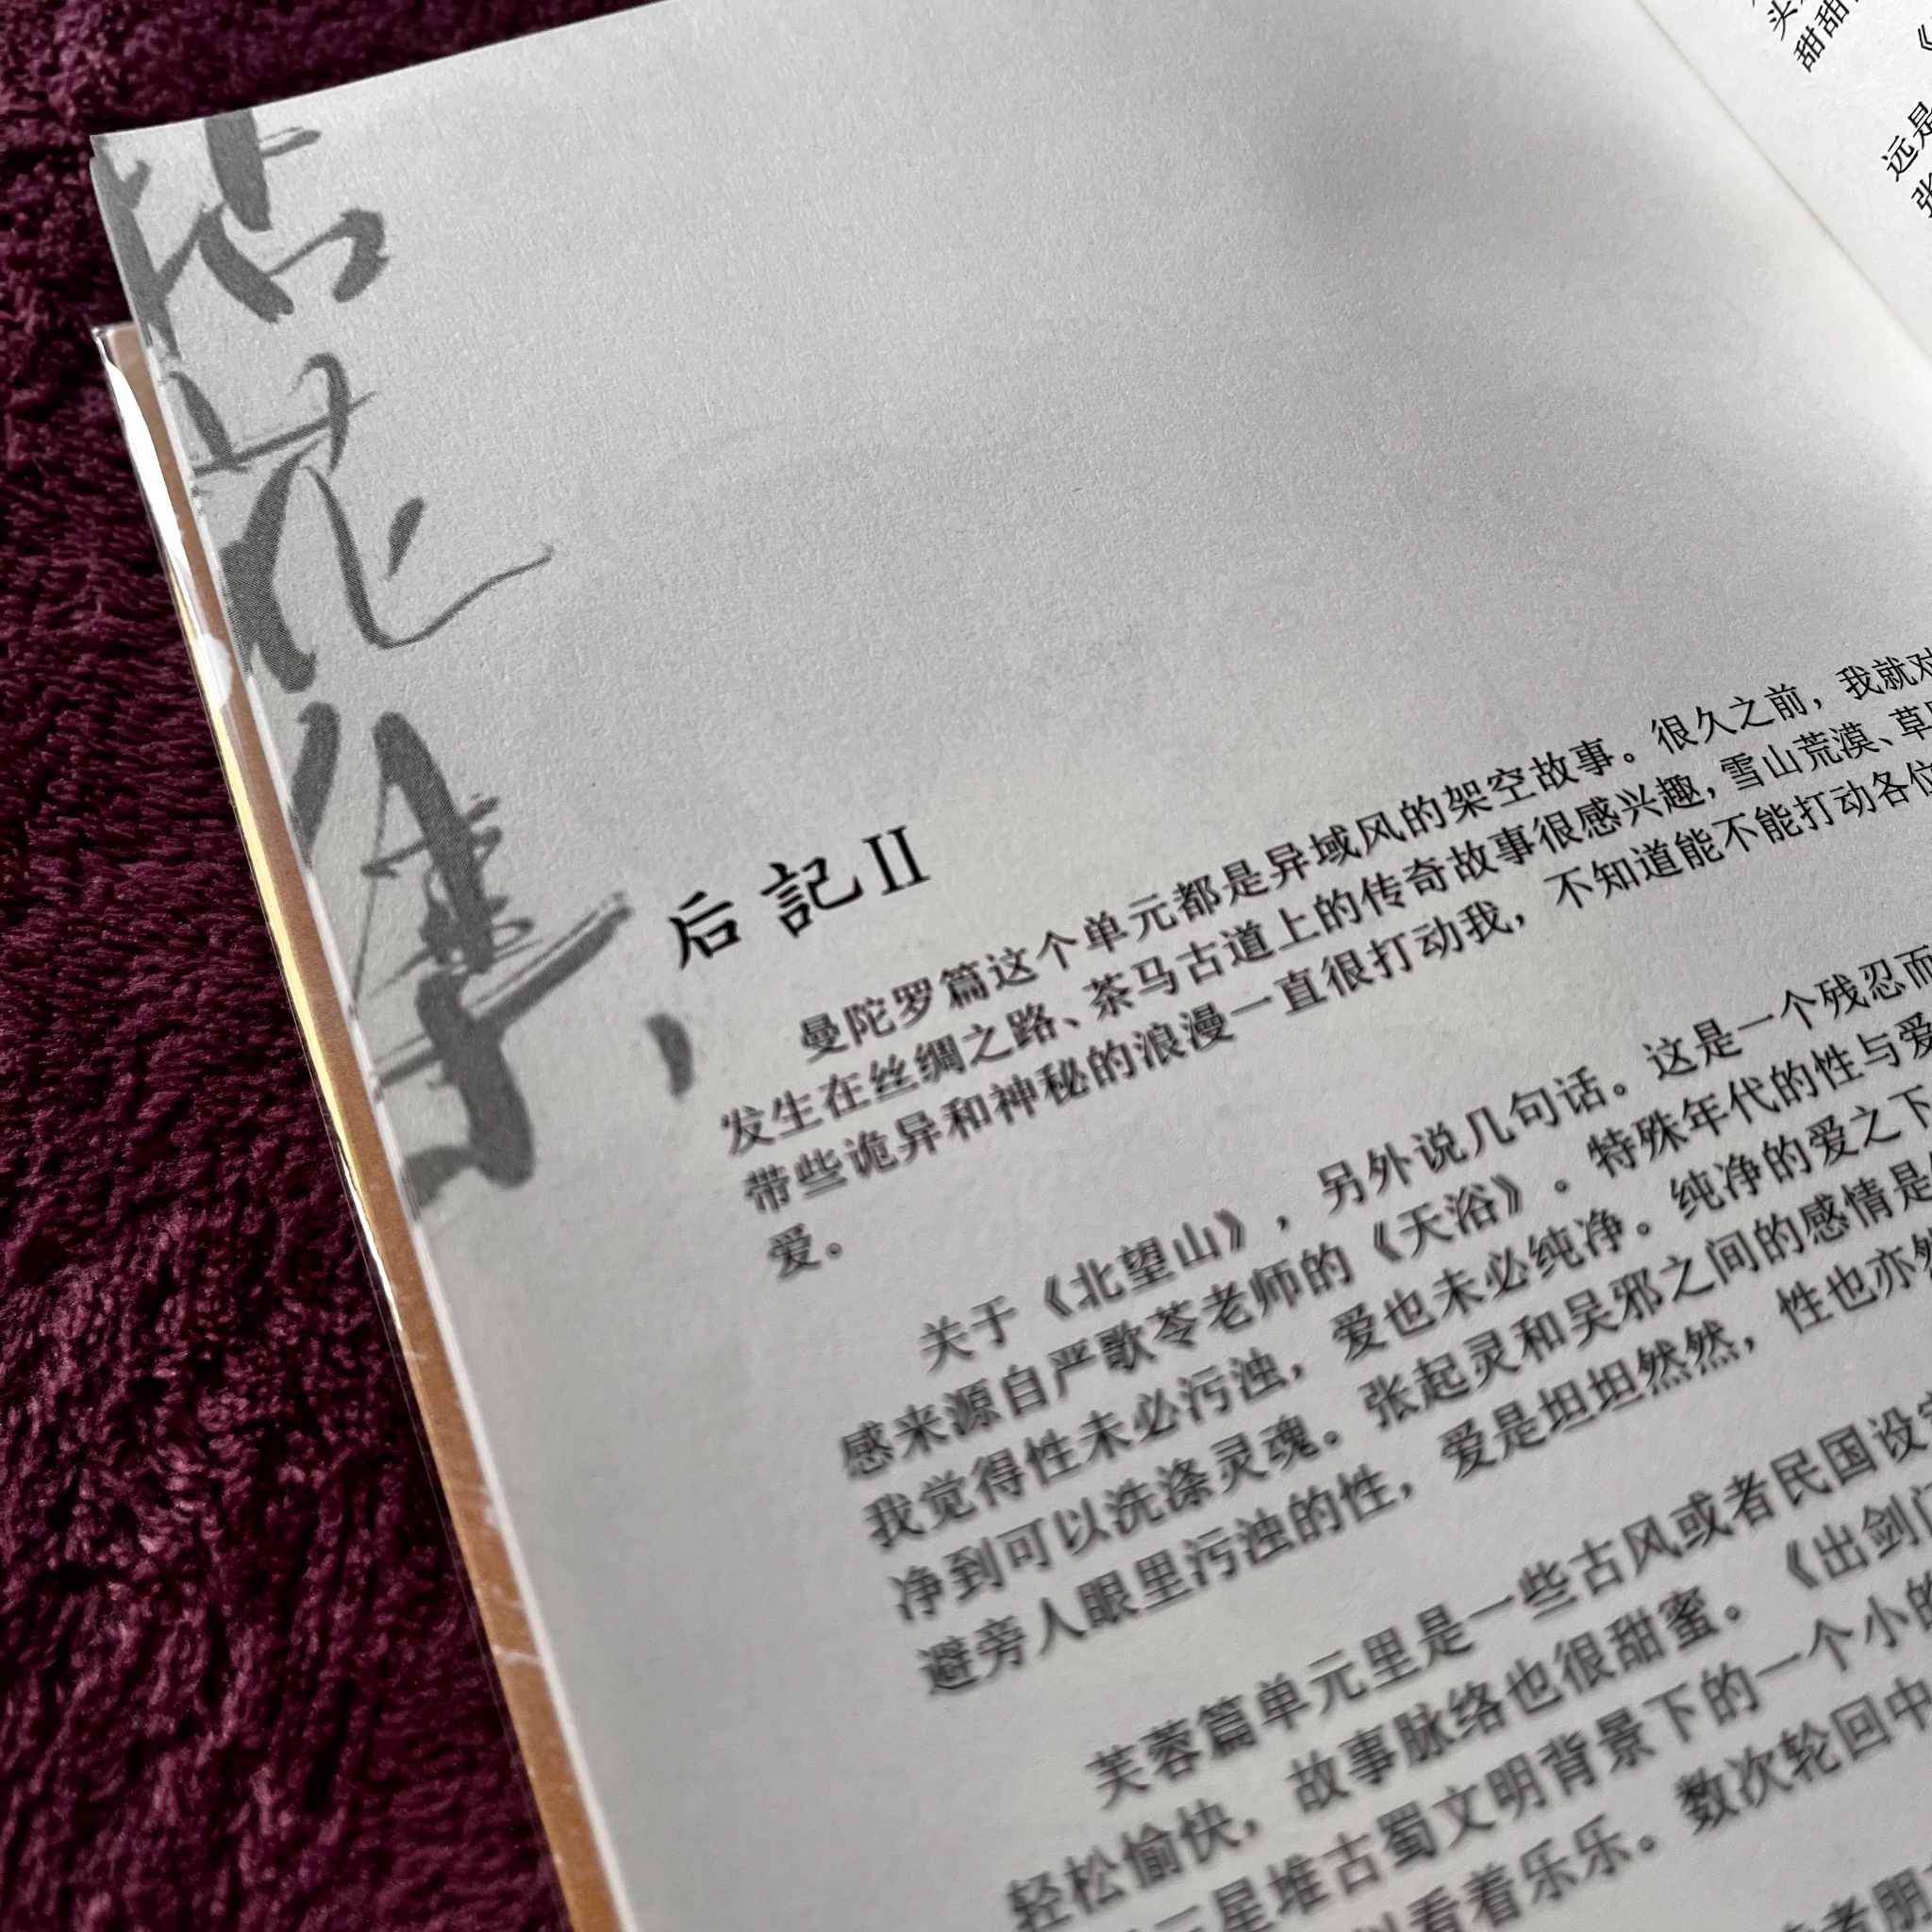 拈花集
后記II
曼陀罗篇这个单元都是异域风的架空故事。很久之前，我就对
发生在丝绸之路、茶马古道上的传奇故事很感兴趣，雪山荒漠、草
带些诡异和神秘的浪漫一直很打动我，不知道能不能打动各位
爱。
关于《北望山》，另外说几句话。这是一个残忍而
感来源自严歌苓老师的《天浴》。特殊年代的性与爱
我觉得性未必污浊，爱也未必纯净。纯净的爱之下
净到可以洗涤灵魂。张起灵和吴邪之间的感情是
避旁人眼里污浊的性，爱是坦坦然然，性也亦然
芙蓉篇单元里是一些古风或者民国设
轻松愉快，故事脉络也很甜蜜。《出剑
三星堆古蜀文明背景下的一个小的
看着乐乐。数次轮回中
者朋
头
甜甜
远是
张